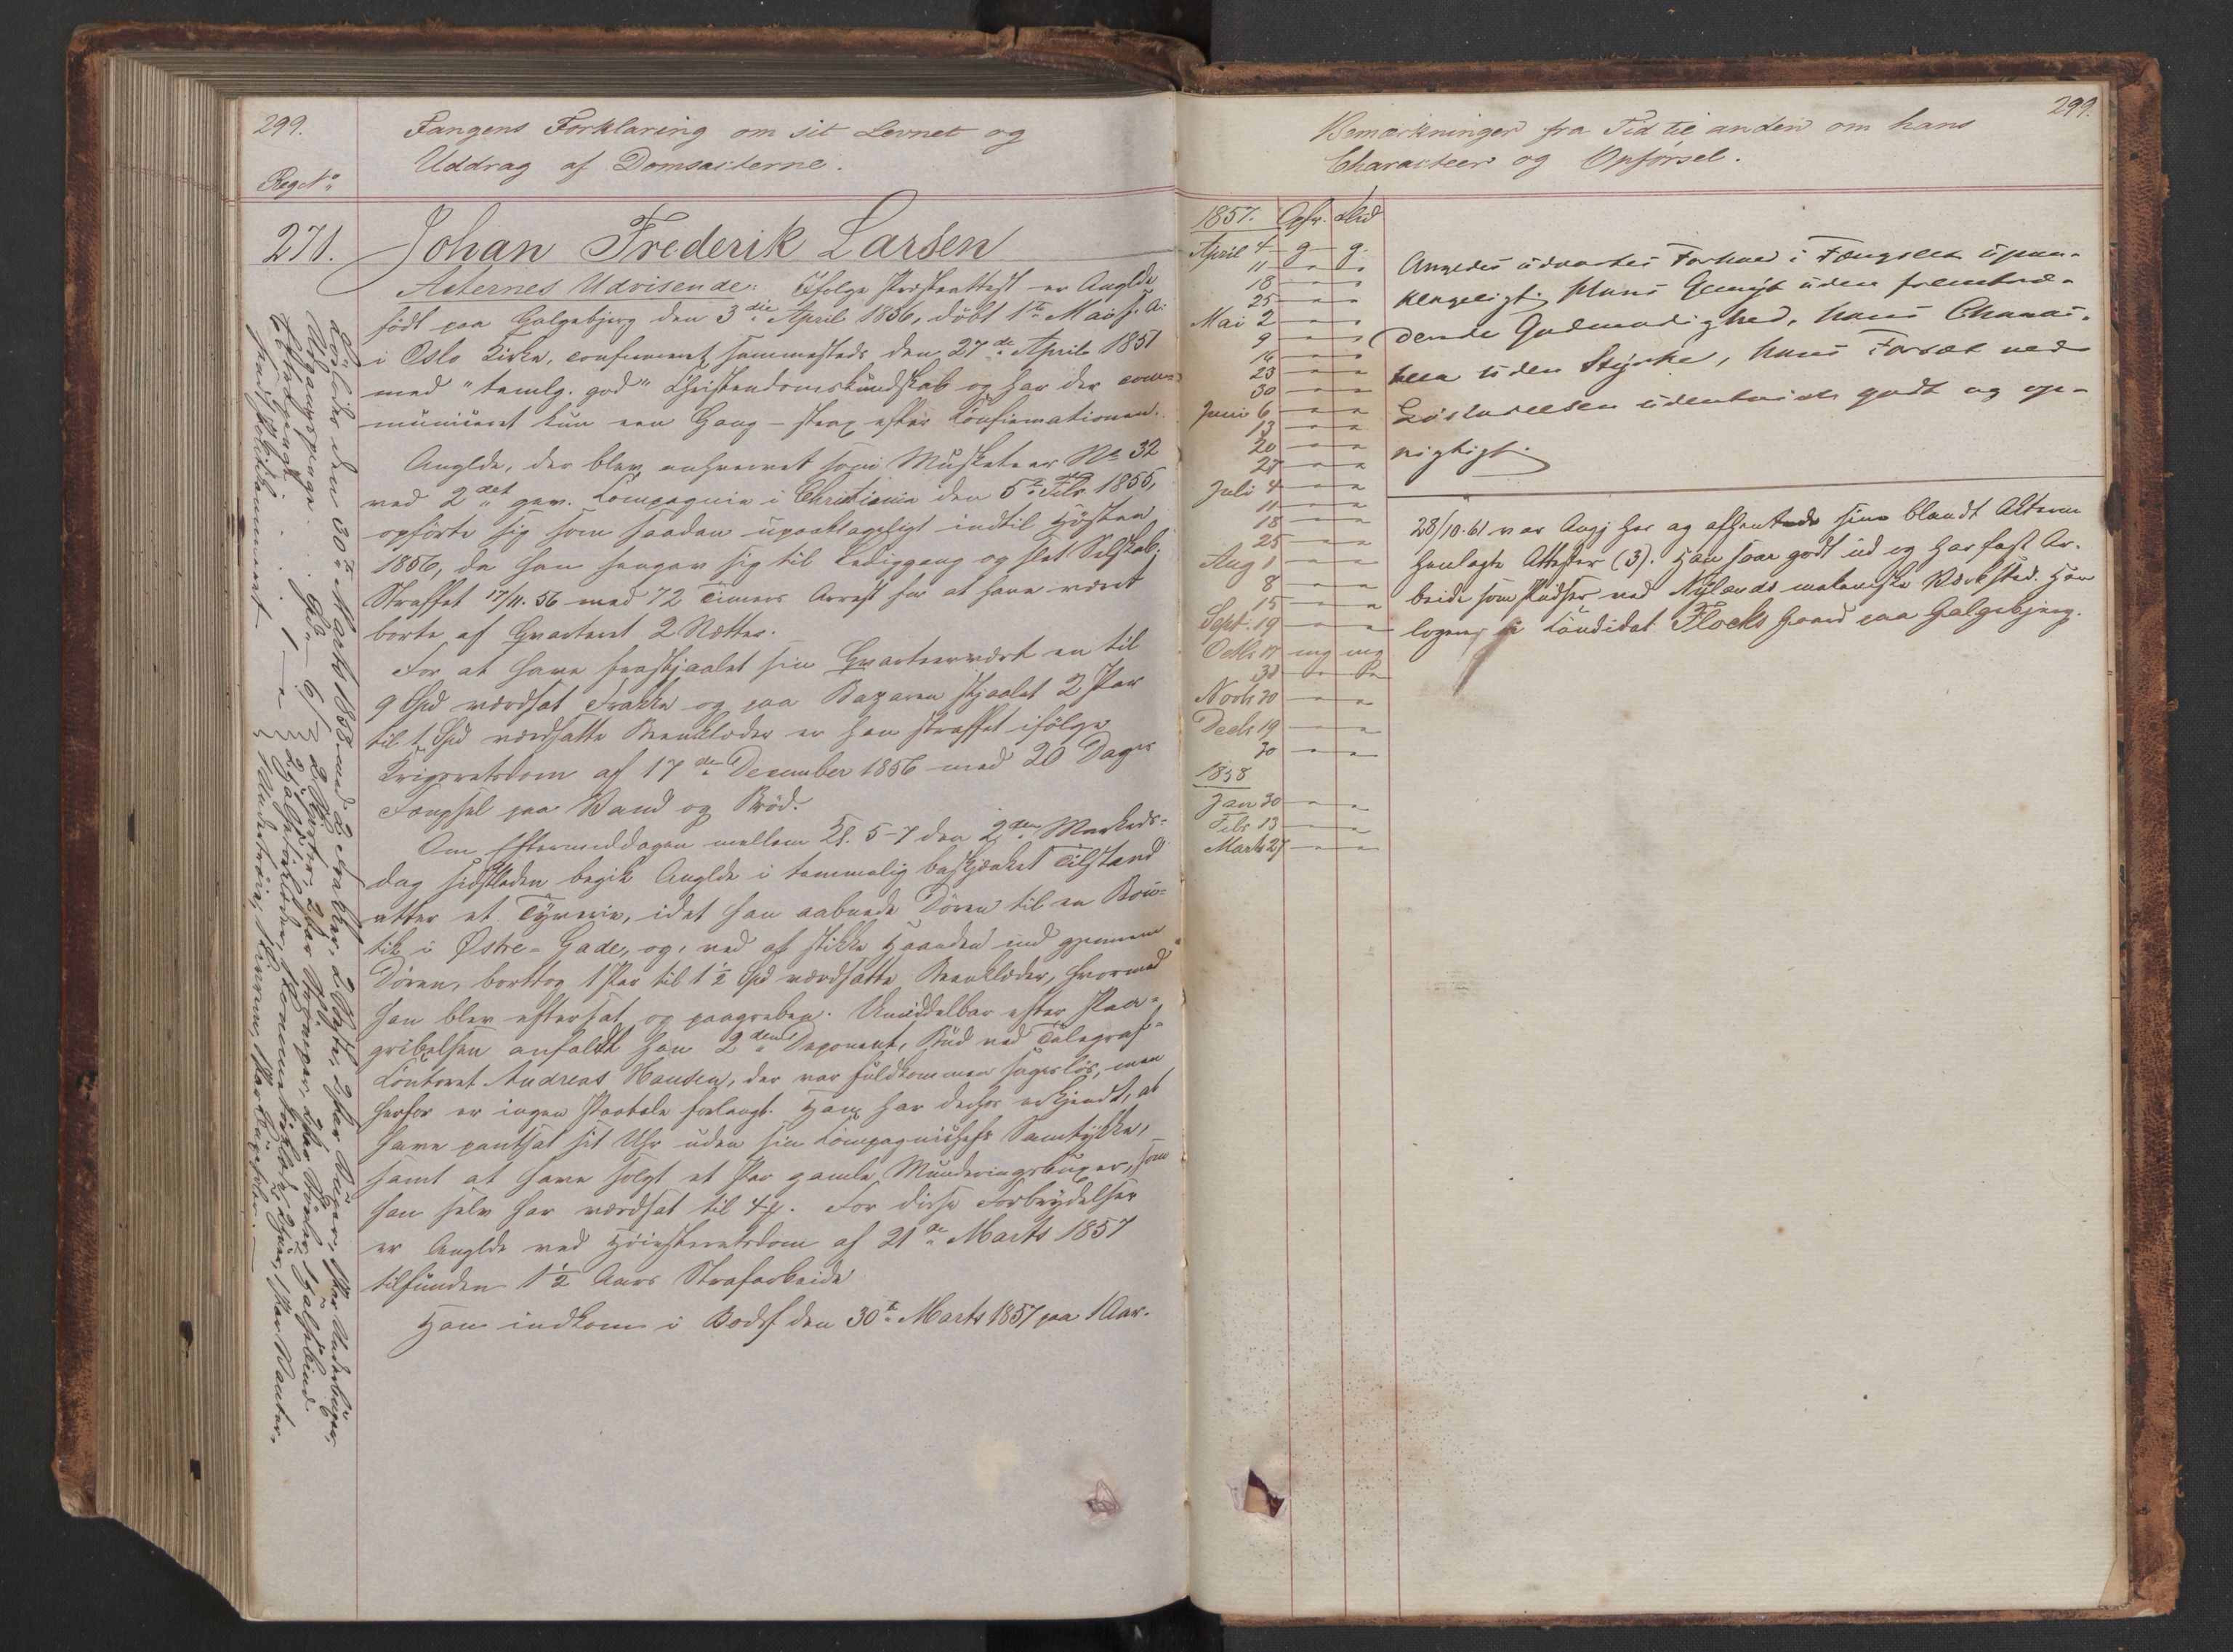 299.
Fangens Forklaring om sit Levnet og
Uddrag af Domsacterne.
Reg No
271.
Johan Frederik Larsen
Acternes Udvisende: Ifølge Præsteattest er Anglde
født paa Galgebjerg den 3die April 1836, døbt 1te Mai s. A.
i Oslo Kirke, confirmeret sammesteds den 27de April 1851
med "temlg. god" Christendomskundskab og har der com=
municeret kun een Gang - strax efter Confirmationen.
Anglde, der blev anhvervet som Musketeer No 32
ved 2det gev. Compagnie i Christiania den 5te Febr. 1855,
opførte sig som saadan upaaklageligt indtil Høsten
1856, da han hengav sig til Lediggang og slet Selskab.
Straffet 17/11. 56 med 72 Timers Arrest for at have været
borte af Qvarteret 2 Nætter.
For at have frastjaalet sin Qvarteervært en til
9 Spd værdsat Frakke og paa Bazaren stjaalet 2 Par
til 1 Spd værdsatte Beenklæder er han straffet ifølge
Krigsretsdom af 17de December 1856 med 20 Dages
Fængsel paa Vand og Brød.
Om Eftermiddagen mellem Kl. 5-7 den 2den Markeds=
dag sidstleden begik Anglde i temmelig beskjænket Tilstand
atter et Tyverie, idet han aabnede Døren til en Bou=
tik i Østre-Gade, og, ved at stikke Haanden ind gjennem
Døren, borttog 1 Par til 1½ Spd værdsatte Beenklæder, hvormed
han blev eftersat og paagreben. Umiddelbar efter Paa=
gribelsen anfaldt han 2den Deponent, Bud ved Telegraf=
Contoret Andreas Hansen, der var fuldkommen sagesløs, men
herfor er ingen Paatale forlangt. Han har derhos erkjendt, at
have pantsat sit Uhr uden sin Compagniechefs Samtykke,
samt at have solgt et Par gamle Munderingsbuxer, som
han selv har værdsat til 4 ß. For disse Forbrydelser
er Anglde ved Høiesteretsdom af 21de Marts 1857
tilfunden 1½ Aars Strafarbeide
Han indkom i Bodsf. den 30te Marts 1857 paa 1 Aar.
Løsladt den 30te Marts 1858 med 2 Frakker, 2 Veste, 2 Par Buxer, 1 Par Underbuxer,
299.
Bemærkninger fra Tid til anden om hans
Characteer og Opførsel.
1857. Opf. Flid
April 4 g g.
11 " "
18 " "
25 " "
Mai 2 " "
9 " "
16 " "
23 " "
30 " "
Juni 6 " "
13 " "
20 " "
27 " "
Juli 4 " "
11 " "
18 " "
25 " "
Aug 1 " "
8 " "
15 " "
Sept. 19 " "
Octb 17 mg mg
" "
Novb 20 " "
Decb 19 " "
30 " "
1858
Jan 30 " "
Febr 13 " "
Marts 27 " "
Angjedes udvortes Forhold i Fængslet upaa-
klageligt, hans Gemyt uden fremtræ-
dende Godmodighed, hans Charac-
teer uden Styrke, hans Forsæt ved
Løsladelsen udentvivl godt og op-
rigtigt.
28/10.61 var Angj her og afhentede sine blandt Acterne
henlagte Attester (3). Han saae godt ud og har fast Ar-
beide som Pudser ved Nylands mekaniske Værksted. Han
logerer i Candidat Flocks Gaard paa Galgebjerg.